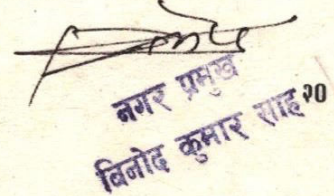 विनोद
नगर प्रमुख
विनोद कुमार साह
२०